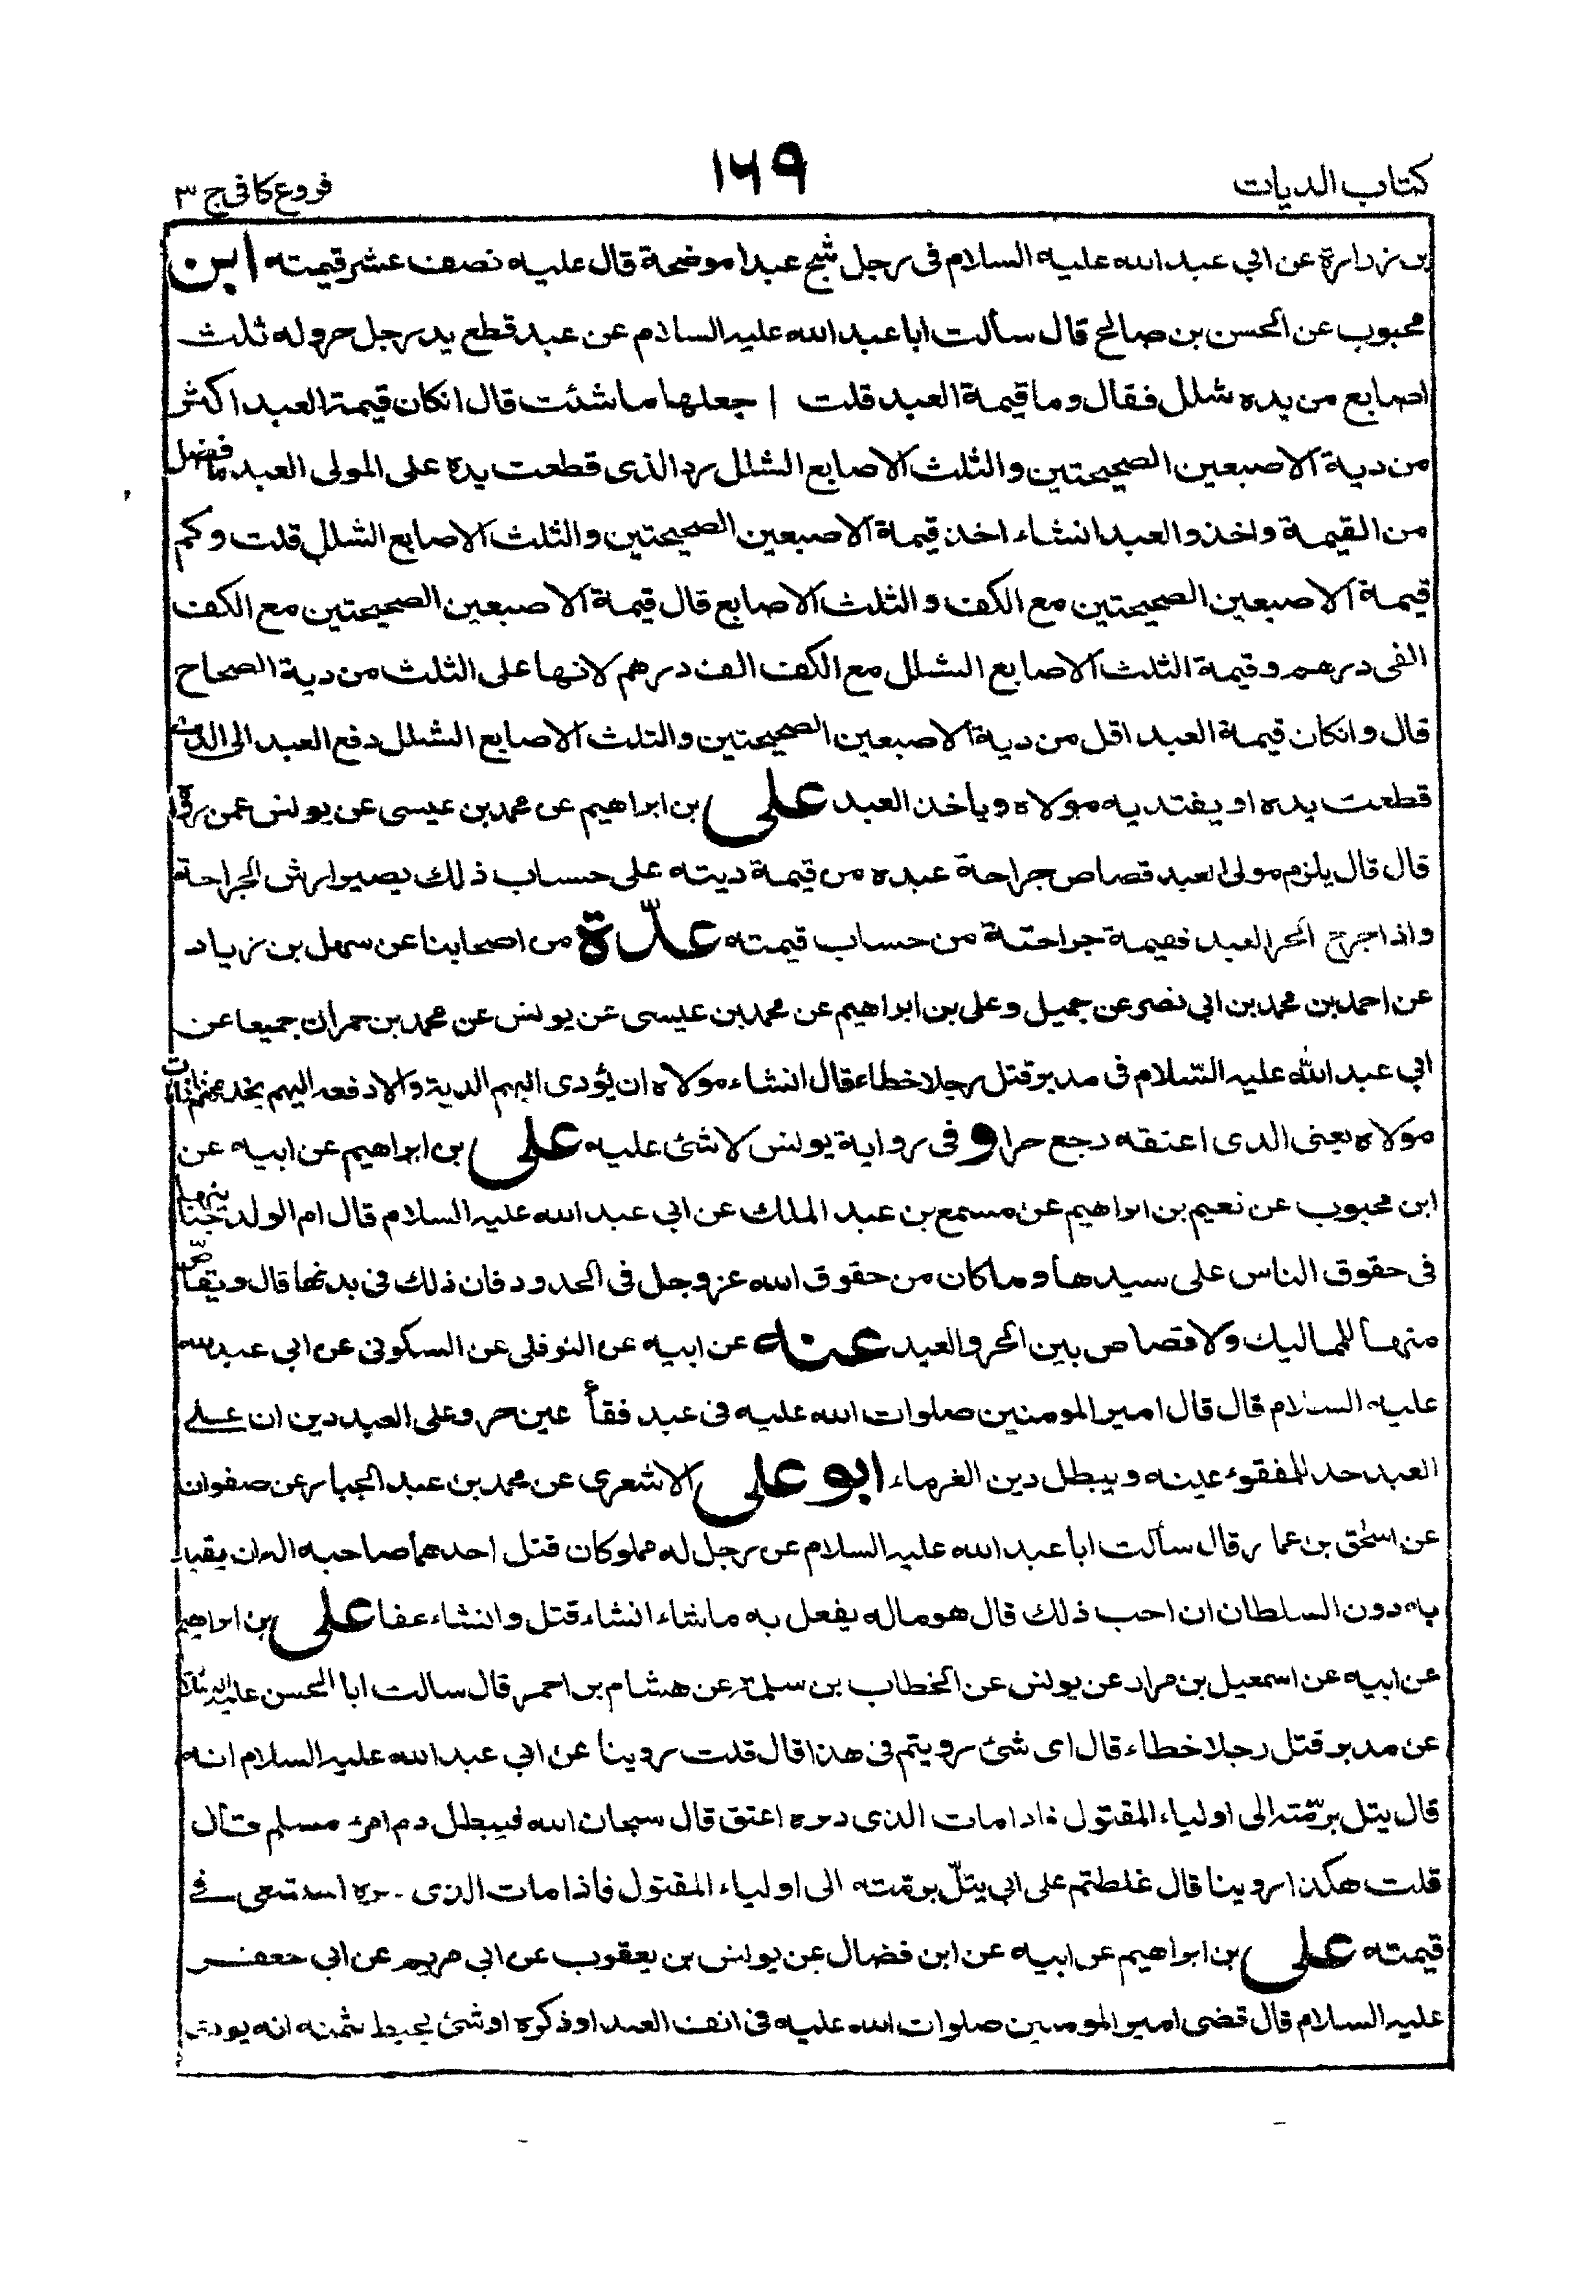 كتاب الديات
١٦٩
فروع كافى ج ٣
بن زرارة عن ابي عبد الله عليه السلام فى رجل شج عبدا موضحة قال عليه نصف عشر قيمته ابن
محبوب عن الحسن بن صالح قال سألت ابا عبد الله عليه السلام عن عبد قطع يد رجل حر وله ثلث
اصابع من يده شلل فقال وما قيمة العبد قلت اجعلها ما شئت قال انكان قيمة العبد اكثر
من دية الاصبعين الصحيحتين والثلث الاصابع الشلل رد الذى قطعت يده على المولى العبد ما فضل
من القيمة واخذ والعبد انشاء اخذ قيمة الاصبعين الصحيحتين والثلث الاصابع الشلل قلت وكم
قيمة الاصبعين الصحيحتين مع الكف والثلث الاصابع قال قيمة الاصبعين الصحيحتين مع الكف
الفى درهم وقيمة الثلث الاصابع الشلل مع الكف الف درهم لانها على الثلث من دية الصحاح
قال وانكان قيمة العبد اقل من دية الاصبعين الصحيحتين والثلث الاصابع الشلل دفع العبد الى الذى
قطعت يده او يفتديه مولاه وياخذ العبد على بن ابراهيم عن محمد بن عيسى عن يونس عمن رواه
قال قال يلزم مولى العبد قصاص جراحة عبده من قيمة ديته على حساب ذلك يصير ارش الجراحة
واذا جرح الحر العبد فقيمة جراحته من حساب قيمته عدّة من اصحابنا عن سهل بن زياد
عن احمد بن محمد بن ابي نصر عن جميل وعلى بن ابراهيم عن محمد بن عيسى عن يونس عن محمد بن حمران جميعا عن
ابي عبد الله عليه السّلام فى مدبر قتل رجلا خطاء قال انشاء مولاه ان يؤدى اليهم الدية والا دفعه اليهم يخدمهم فاذا مات
مولاه يعنى الذى اعتقه رجع حرا وفى رواية يونس لا شئ عليه على بن ابراهيم عن ابيه عن
ابن محبوب عن نعيم بن ابراهيم عن مسمع بن عبد الملك عن ابي عبد الله عليه السلام قال ام الولد جنايتها
فى حقوق الناس على سيدها وما كان من حقوق الله عز وجل فى الحدود فان ذلك فى بدنها قال ويقاصّ
منها للمماليك ولا قصاص بين الحر والعبد عنه عن ابيه عن النوفلى عن السكونى عن ابي عبد الله
عليه السلام قال قال امير المومنين صلوات الله عليه فى عبد فقأ عين حر وعلى العبد دين ان على
العبد حد للمفقوء عينه ويبطل دين الغرماء ابو على الاشعرى عن محمد بن عبد الجبار عن صفوان
عن اسحٰق بن عمار قال سألت ابا عبد الله عليه السلام عن رجل له مملوكان قتل احدهما صاحبه اله ان يقيد
به دون السلطان ان احب ذلك قال هو ماله يفعل به ما شاء انشاء قتل وانشاء عفا على بن ابراهيم
عن ابيه عن اسمعيل بن مرار عن يونس عن الخطاب بن سلمة عن هشام بن احمر قال سالت ابا الحسن عليه السلام
عن مدبر قتل رجلا خطاء قال اى شئ رويتم فى هذا قال قلت روينا عن ابي عبد الله عليه السلام انه
قال يتل برمّته الى اولياء المقتول فاذا مات الذى دبره اعتق قال سبحان الله فيبطل دم امرء مسلم قال
قلت هكذا روينا قال غلطتم على ابي يتلّ برمته الى اولياء المقتول فاذا مات الذى دبره استسعى فى
قيمته على بن ابراهيم عن ابيه عن ابن فضال عن يونس بن يعقوب عن ابي مريم عن ابي جعفر
عليه السلام قال قضى امير المومنين صلوات الله عليه فى انف العبد او ذكره او شئ يحيط بثمنه انه يودى